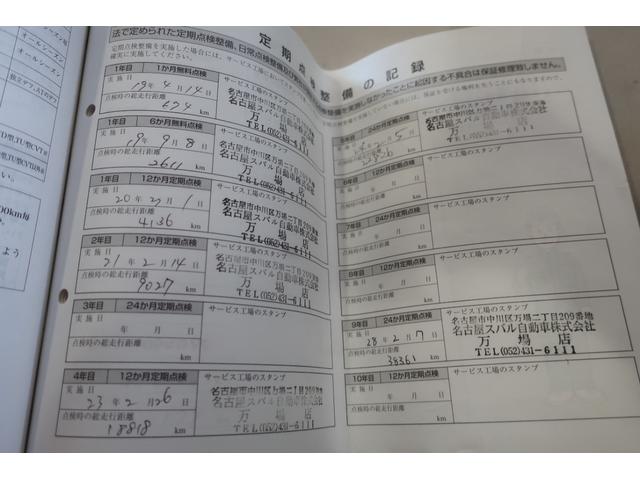 オールシーズン
オールシーズン
定期点検整備の記録
法で定められた定期点検整備、日常点検整備及び
整備を実施しなかったことに起因する不具合は保証修理致しません。
定期点検整備を実施した場合には、サービス工場において
確実に実施してください。
1年目 1か月無料点検
サービス工場のスタンプ
実施日
19年 4月 14日
点検時の総走行距離
674 km
名古屋市中川区万場二丁目209番
名古屋スバル自動車株式会社
万場店
TEL(052)431-6111
1年目 6か月無料点検
サービス工場のスタンプ
実施日
19年 9月 8日
点検時の総走行距離
2611 km
名古屋市中川区万場二丁目209番
名古屋スバル自動車株式会社
万場店
TEL(052)431-6111
1年目 12か月定期点検
サービス工場のスタンプ
実施日
20年 2月 1日
点検時の総走行距離
4136 km
名古屋市中川区万場二丁目209番
名古屋スバル自動車株式会社
万場店
TEL(052)431-6111
2年目 12か月定期点検
サービス工場のスタンプ
実施日
21年 2月 14日
点検時の総走行距離
9027 km
名古屋市中川区万場二丁目209番
名古屋スバル自動車株式会社
万場店
TEL(052)431-6111
3年目 24か月定期点検
サービス工場のスタンプ
実施日
年 月 日
点検時の総走行距離
km
4年目 12か月定期点検
サービス工場のスタンプ
実施日
23年 2月 26日
点検時の総走行距離
18818 km
名古屋市中川区万場二丁目209番
名古屋スバル自動車株式会社
万場店
TEL(052)431-6111
5年目 24か月定期点検
実施日
点検時の総走行距離
km
名古屋スバル自動車株式会社
万場店
TEL(052)431-6111
6年目 12か月定期点検
サービス工場のスタンプ
実施日
年 月 日
点検時の総走行距離
km
7年目 24か月定期点検
サービス工場のスタンプ
実施日
年 月 日
点検時の総走行距離
km
8年目 12か月定期点検
サービス工場のスタンプ
実施日
年 月 日
点検時の総走行距離
km
9年目 24か月定期点検
サービス工場のスタンプ
実施日
28年 2月 7日
点検時の総走行距離
38361 km
名古屋市中川区万場二丁目209番地
名古屋スバル自動車株式会社
万場店
TEL(052)431-6111
10年目 12か月定期点検
サービス工場のスタンプ
実施日
年 月 日
点検時の総走行距離
km